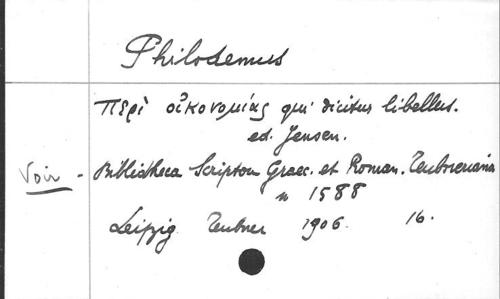 Philodemus
Περὶ οἰκονομίας qui dicitur libellus.
ed. Jensen.
Voir - Bibliotheca Scriptom Graec. et Roman. Teubneriana
n 1588
Leipzig Teubner 1906. 16.